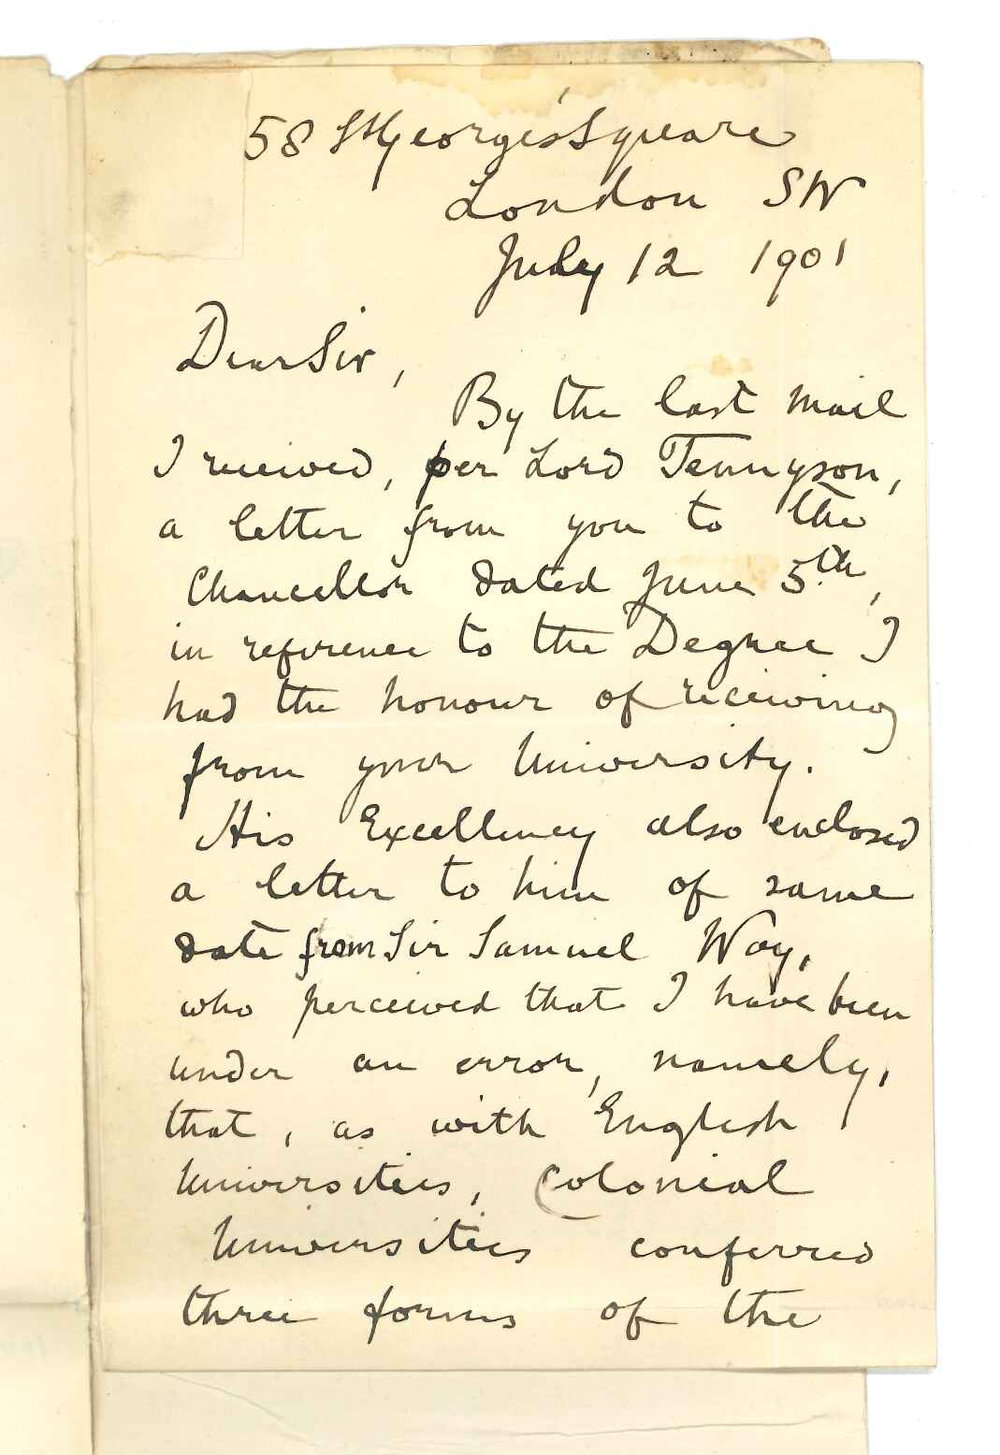 58 St George's Square
London SW
July 12 1901
Dear Sir,
By the last mail
I received, per Lord Tennyson,
a letter from you to the
Chancellor dated June 5th,
in reference to the Degree I
had the honour of receiving
from your University.
His Excellency also enclosed
a letter to him of same
date from Sir Samuel Way,
who perceived that I have been
under an error, namely,
that, as with English
Universities, Colonial
Universities conferred
three forms of the